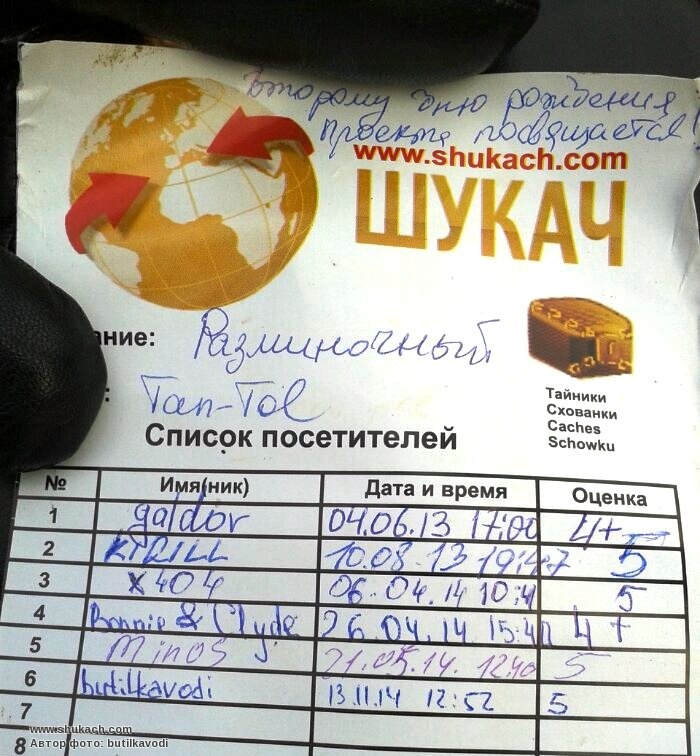 Второму дню рождения
проекта посвящается!
www.shukach.com
ШУКАЧ
ание: Разминочный
: Tan-Tol
Тайники
Схованки
Caches
Schowku
Список посетителей
№ Имя(ник) Дата и время Оценка
1 galdor 04.06.13 17:00 4+
2 KIRILL 10.08.13 19:47 5
3 x404 06.04.14 10:4 5
4 Bonnie & Clyde 26.04.14 15:4 4+
5 Minos 21.05.14. 12:40 5
6 butilkavodi 13.11.14 12:52 5
7
8
www.shukach.com
Автор фото: butilkavodi